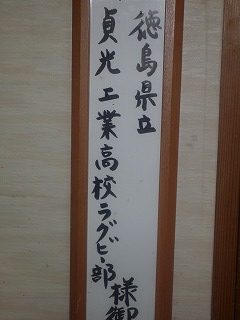 徳島県立
貞光工業高校ラグビー部
様御